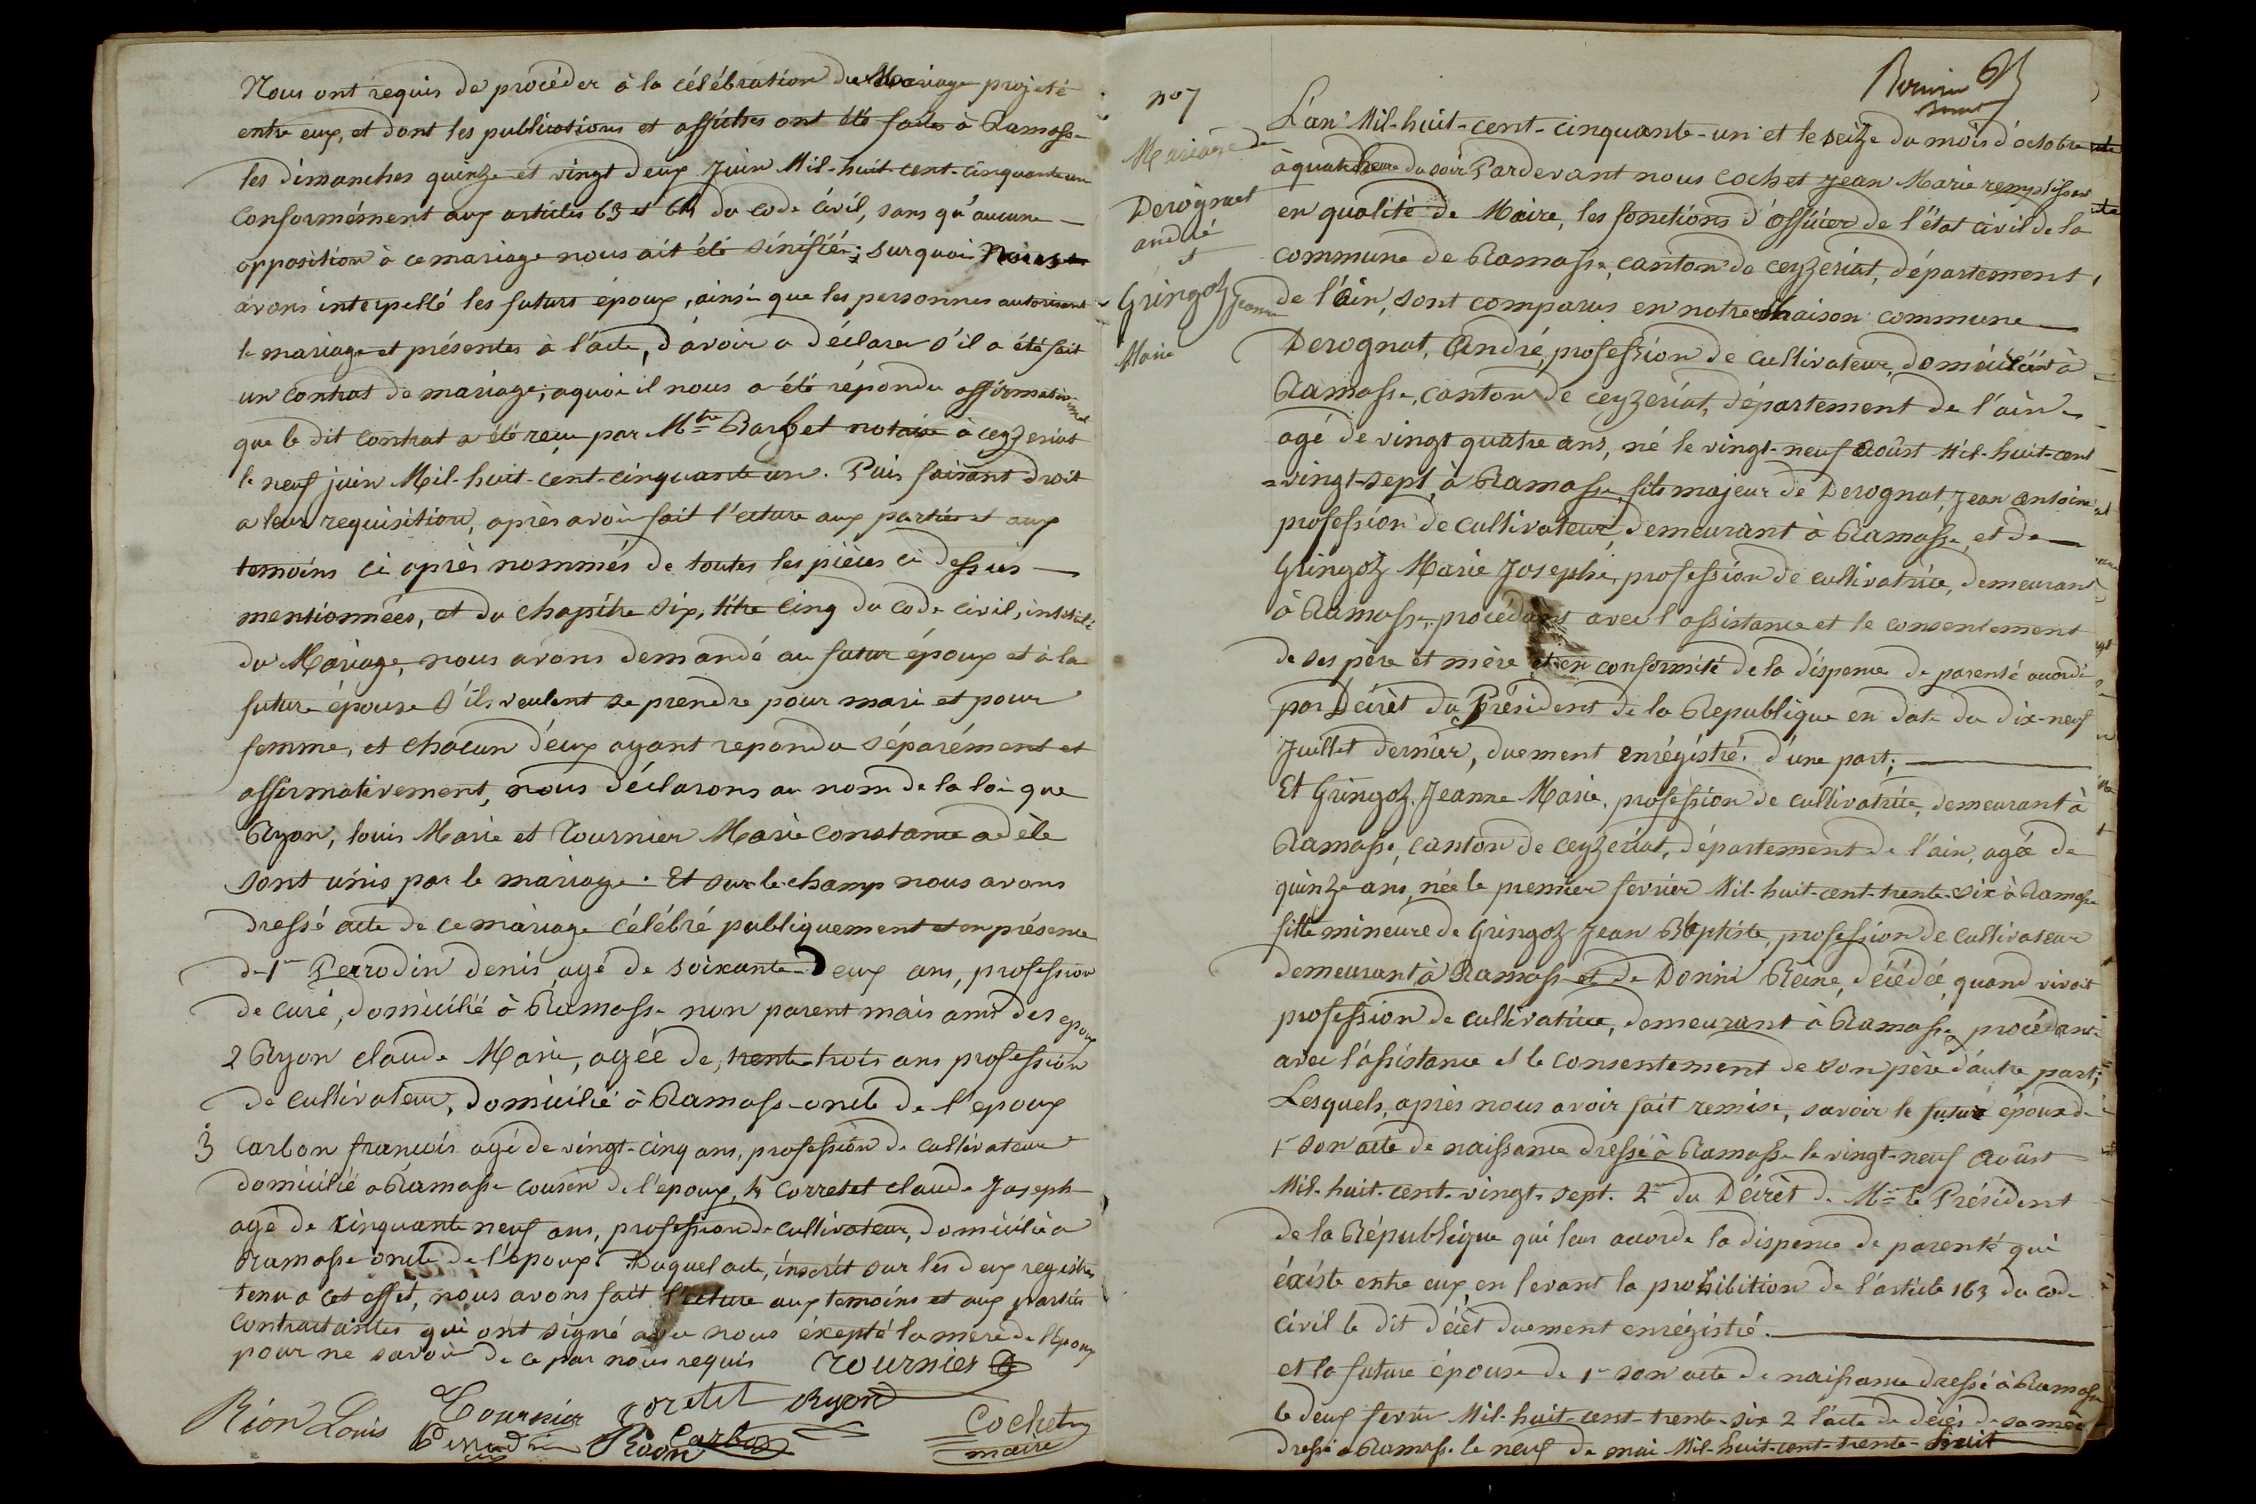 Nous ont requis de procéder à la célébration du Mariage projeté
entre eux, et dont les publications et affiches ont été faites à Ramasse
les dimanches quinze et vingt deux Juin Mil-huit-cent-cinquante un
Conformément aux articles 63 et 64 du code civil, sans qu'aucune
opposition à ce mariage nous ait été sinifiée; surquoi Nous
avons interpellé les futurs époux, ainsi que les personnes autorisant
le mariage et présentes à l'acte, d'avoir a déclarer s'il a été fait
un Contrat de mariage; aquoi il nous a été répondu affirmativement
que le dit Contrat a été reçu par Mtre Barbet notaire à ceyzeriat
le neuf juin Mil-huit-cent-cinquante un. Puis faisant droit
a leur requisition, après avoir fait l'ecture aux parties et aux
temoins ci après nommés de toutes les pièces ci dessus
mentionnées, et du chapitre six, titre Cinq du code civil, intitulé
du Mariage, nous avons demandé au futur époux et à la
future épouse s'ils veulent se prendre pour mari et pour
femme, et chacun d'eux ayant repondu séparément et
affirmativement, nous déclarons au nom de la loi que
Ryon, louis Marie et Tournier Marie constance adèle
sont unis par le mariage. Et sur le champ nous avons
dressé acte de ce mariage célébré publiquement et en présence
de 1er Perrodin denis agé de soixante-Deux ans, profession
de curé, domicilié à Ramasse non parent mais ami des epoux
2 Ryon claude Marie, agée de, trente-trois ans profession
de cultivateur, Domicilié à Ramasse oncle de l'epoux
3 Carbon francois agé de vingt-cinq ans, profession de cultivateur
domicilié a Ramasse cousin de l'epoux, 4 Corretet claude Joseph
agé de cinquante neuf ans, profession de cultivateur, domicilié a
Ramasse oncle de l'époux Duquel acte, inscrit sur les deux registres
tenu a cet effet, nous avons fait l'ecture aux temoins et aux parties
Contractantes qui ont signé avec nous éxepté la mère de l'Epoux
pour ne savoir de ce par nous requis Tournier
Rion Louis Tournier Coretet Ryon
Perrodin Rion Carbon Cochet
maire
no 7
Mariage de
Derognat
andré
et
Gringoz Jeanne
Marie
L'an Mil-huit-cent-cinquante-un et le seize du mois d'octobre
à quatre heure du soir Pardevant nous Cochet Jean Marie remplissant
en qualité de Maire, les fonctions d'officier de l'état civil de la
commune de Ramasse, canton de ceyzeriat, département
de l'ain, sont comparus en notre Maison commune
Derognat, André, profession de cultivateur, domicilié à
Ramasse, canton de ceyzériat, département de l'ain
agé de vingt quatre ans, né le vingt-neuf Août Mil-huit-cent
-vingt-sept, à Ramasse, fils majeur de Derognat, Jean Antoine
profession de cultivateur, demeurant à Ramasse, et de
Gringoz Marie Josephe, profession de cultivatrice, demeurant
à Ramasse, procédant avec l'assistance et le consentement
de ses père et mère et en conformité de la dispense de parenté accordé
par Décrèt du Président de la Republique en date du dix-neuf
Juillet dernier, duement enrégistré. d'une part;
Et Gringoz Jeanne Marie, profession de cultivatrice, demeurant à
Ramasse, canton de ceyzériat, département de l'ain, agée de
quinze ans, née le premier fevrier Mil-huit-cent-trente-six à Ramasse
fille mineure de Gringoz Jean Baptiste, profession de cultivateur
demeurant à Ramasse et de Donin Reine, décédée, quand vivait
profession de cultivatrice, demeurant à Ramasse, procédant
avec l'assistance et le consentement de son père d'autre part;
Lesquels, après nous avoir fait remise, savoir le futur époux de
1er son acte de naissance dressé à Ramasse le vingt-neuf Août
Mil-huit-cent-vingt-sept. 2 du Décrèt de Mr le Président
de la République qui leur accorde la dispense de parenté qui
éxiste entre eux, en levant la prohibition de l'article 163 du code
civil le dit décrèt duement enrégistré.
et la future épouse de 1er son acte de naissance dressé à Ramasse
le deux fevrier Mil-huit-cent-trente-six 2 l'acte de décés de sa mère
dressé à Ramasse le neuf de mai Mil-huit-cent-trente-huit